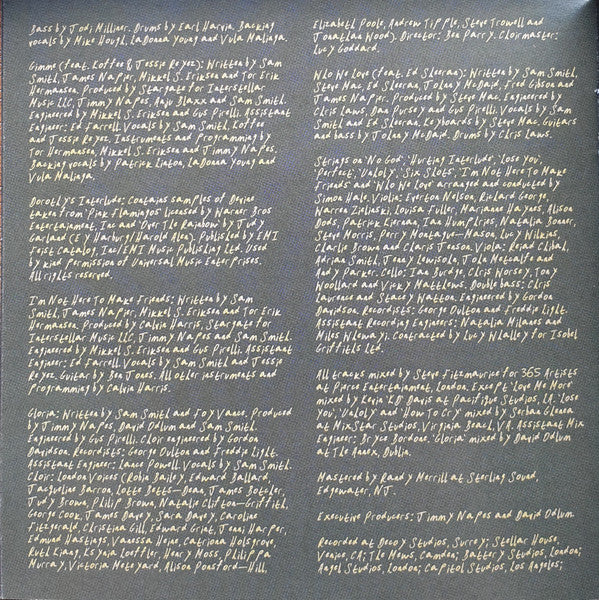 Bass by Jodi Milliner. Drums by Earl Harvin. Backing
vocals by Mike Hough, LaDonna Young and Vula Malinga.
Gimme (feat. Koffee & Jessie Reyez): Written by Sam
Smith, James Napier, Mikkel S. Eriksen and Tor Erik
Hermansen. Produced by Stargate for Interstellar
Music LLC, Jimmy Napes, Anju Blaxx and Sam Smith.
Engineered by Mikkel S. Eriksen and Gus Pirelli. Assistant
Engineer: Ed Farrell. Vocals by Sam Smith, Koffee
and Jessie Reyez. Instruments and Programming by
Tor Hermansen, Mikkel S. Eriksen and Jimmy Napes.
Backing vocals by Patrick Linton, LaDonna Young and
Vula Malinga.
Dorothy's Interlude: Contains samples of Devine
taken from 'Pink Flamingos' licensed by Warner Bros
Entertainment, Inc and 'Over The Rainbow' by Judy
Garland (EY Harburg/Harold Alen). Published by EMI
Feist Catalog, Inc/EMI Music Publishing Ltd. Used
by kind permission of Universal Music Enterprises.
All rights reserved.
I'm Not Here To Make Friends: Written by Sam
Smith, James Napier, Mikkel S. Eriksen and Tor Erik
Hermansen. Produced by Calvin Harris, Stargate for
Interstellar Music LLC, Jimmy Napes and Sam Smith.
Engineered by Mikkel S. Eriksen and Gus Pirelli. Assistant
Engineer: Ed Farrell. Vocals by Sam Smith and Jessie
Reyez. Guitar by Ben Jones. All other instruments and
Programming by Calvin Harris.
Gloria: Written by Sam Smith and Foy Vance. Produced
by Jimmy Napes, David Odlum and Sam Smith.
Engineered by Gus Pirelli. Choir engineered by Gordon
Davidson. Recordists: George Oulton and Freddie Light.
Assistant Engineer: Lance Powell. Vocals by Sam Smith.
Choir: London Voices (Robin Bailey, Edward Ballard,
Jacqueline Barron, Lotte Betts-Dean, James Botcher,
Judy Brown, Philip Brown, Natalie Clifton-Griffith,
George Cook, James Davey, Sara Davey, Caroline
Fitzgerald, Christina Gill, Edward Grint, Jenni Harper,
Edmund Hastings, Vanessa Heine, Catriona Holsgrove,
Ruth Kiang, Ksynia Loeffler, Henry Moss, Philippa
Murray, Victoria Meteyard, Alison Ponsford-Hill,
Elizabeth Poole, Andrew Tipple, Steve Trowell and
Jonathan Wood). Director: Ben Parry. Choirmaster:
Lucy Goddard.
Who We Love (feat. Ed Sheeran): Written by Sam Smith,
Steve Mac, Ed Sheeran, Johnny McDaid, Fred Gibson and
James Napier. Produced by Steve Mac. Engineered by
Chris Laws, Dan Pursey and Gus Pirelli. Vocals by Sam
Smith and Ed Sheeran. Keyboards by Steve Mac. Guitars
and bass by Johnny McDaid. Drums by Chris Laws.
Strings on 'No God', 'Hurting Interlude', 'Lose You',
'Perfect', 'Unholy', 'Six Shots', 'I'm Not Here To Make
Friends' and 'Who We Love' arranged and conducted by
Simon Hale. Violin: Everton Nelson, Richard George,
Warren Zielinski, Louisa Fuller, Marianne Haynes, Alison
Dods, Patrick Kiernan, Ian Humphries, Natalia Bonner,
Steve Morris, Perry Montague-Mason, Lucy Wilkins,
Charlie Brown and Clairs Jeeson. Viola: Reiad Chibah,
Adrian Smith, Jenny Lewisohn, John Metcalfe and
Andy Parker. Cello: Ian Burdge, Chris Worsey, Tony
Woollard and Vicky Matthews. Double bass: Chris
Laurence and Stacey Watton. Engineered by Gordon
Davidson. Recordists: George Oulton and Freddie Light.
Assistant Recording Engineers: Natalia Milanes and
Miles Wheway. Contracted by Lucy Whalley for Isobel
Griffiths Ltd.
All tracks mixed by Steve Fitzmaurice for 365 Artists
at Pierce Entertainment, London. Except 'Love Me More'
mixed by Kevin 'KD' Davis at Pacifique Studios, LA. 'Lose
You', 'Unholy' and 'How To Cry' mixed by Serban Ghenea
at MixStar Studios, Virginia Beach, VA. Assistant Mix
Engineer: Bryce Bordone. 'Gloria' mixed by David Odlum
at The Annex, Dublin.
Mastered by Randy Merrill at Sterling Sound,
Edgewater, NJ.
Executive Producers: Jimmy Napes and David Odlum
Recorded at Decoy Studios, Surrey; Stellar House,
Venice, CA; The Mews, Camden; Battery Studios, London;
Angel Studios, London; Capitol Studios, Los Angeles;